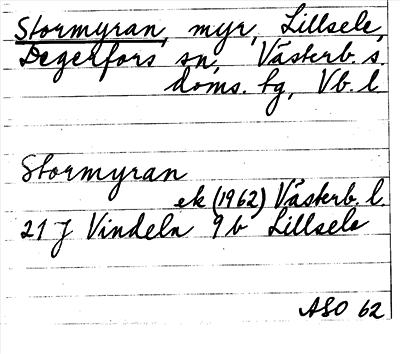 Stormyran, myr, Lillsele,
Degerfors sn, Västerb. s.
doms. tg, Vb. l.
Stormyran
ek (1962) Västerb. l.
21 J Vindeln 9 b Lillsele
ASO 62